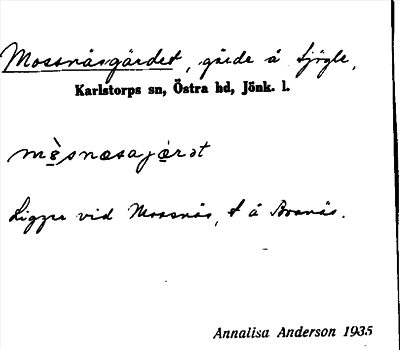 Mossnäsgärdet, gärde å Sjögle,
Karlstorps sn, Östra hd, Jönk. l.
Ligger vid Mossnäs, t å Boanäs.
Annalisa Anderson 1935